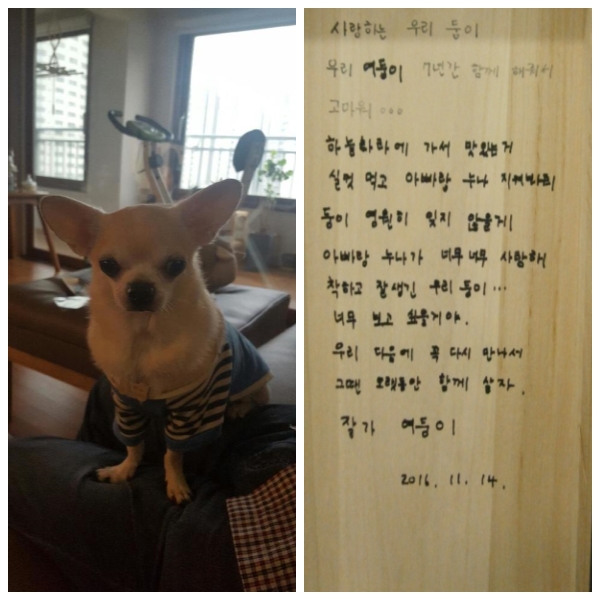 사랑하는 우리 둥이
우리 여둥이 7년간 함께 해줘서
고마워 ooo
하늘나라에 가서 맛있는거
실컷 먹고 아빠랑 누나 지켜봐줘
둥이 영원히 잊지 않을게
아빠랑 누나가 너무너무 사랑해
착하고 잘생긴 우리 둥이...
너무 보고 싶을거야.
우리 다음에 꼭 다시 만나서
그땐 오랫동안 함께 살자.
잘가 여둥이
2016. 11. 14.